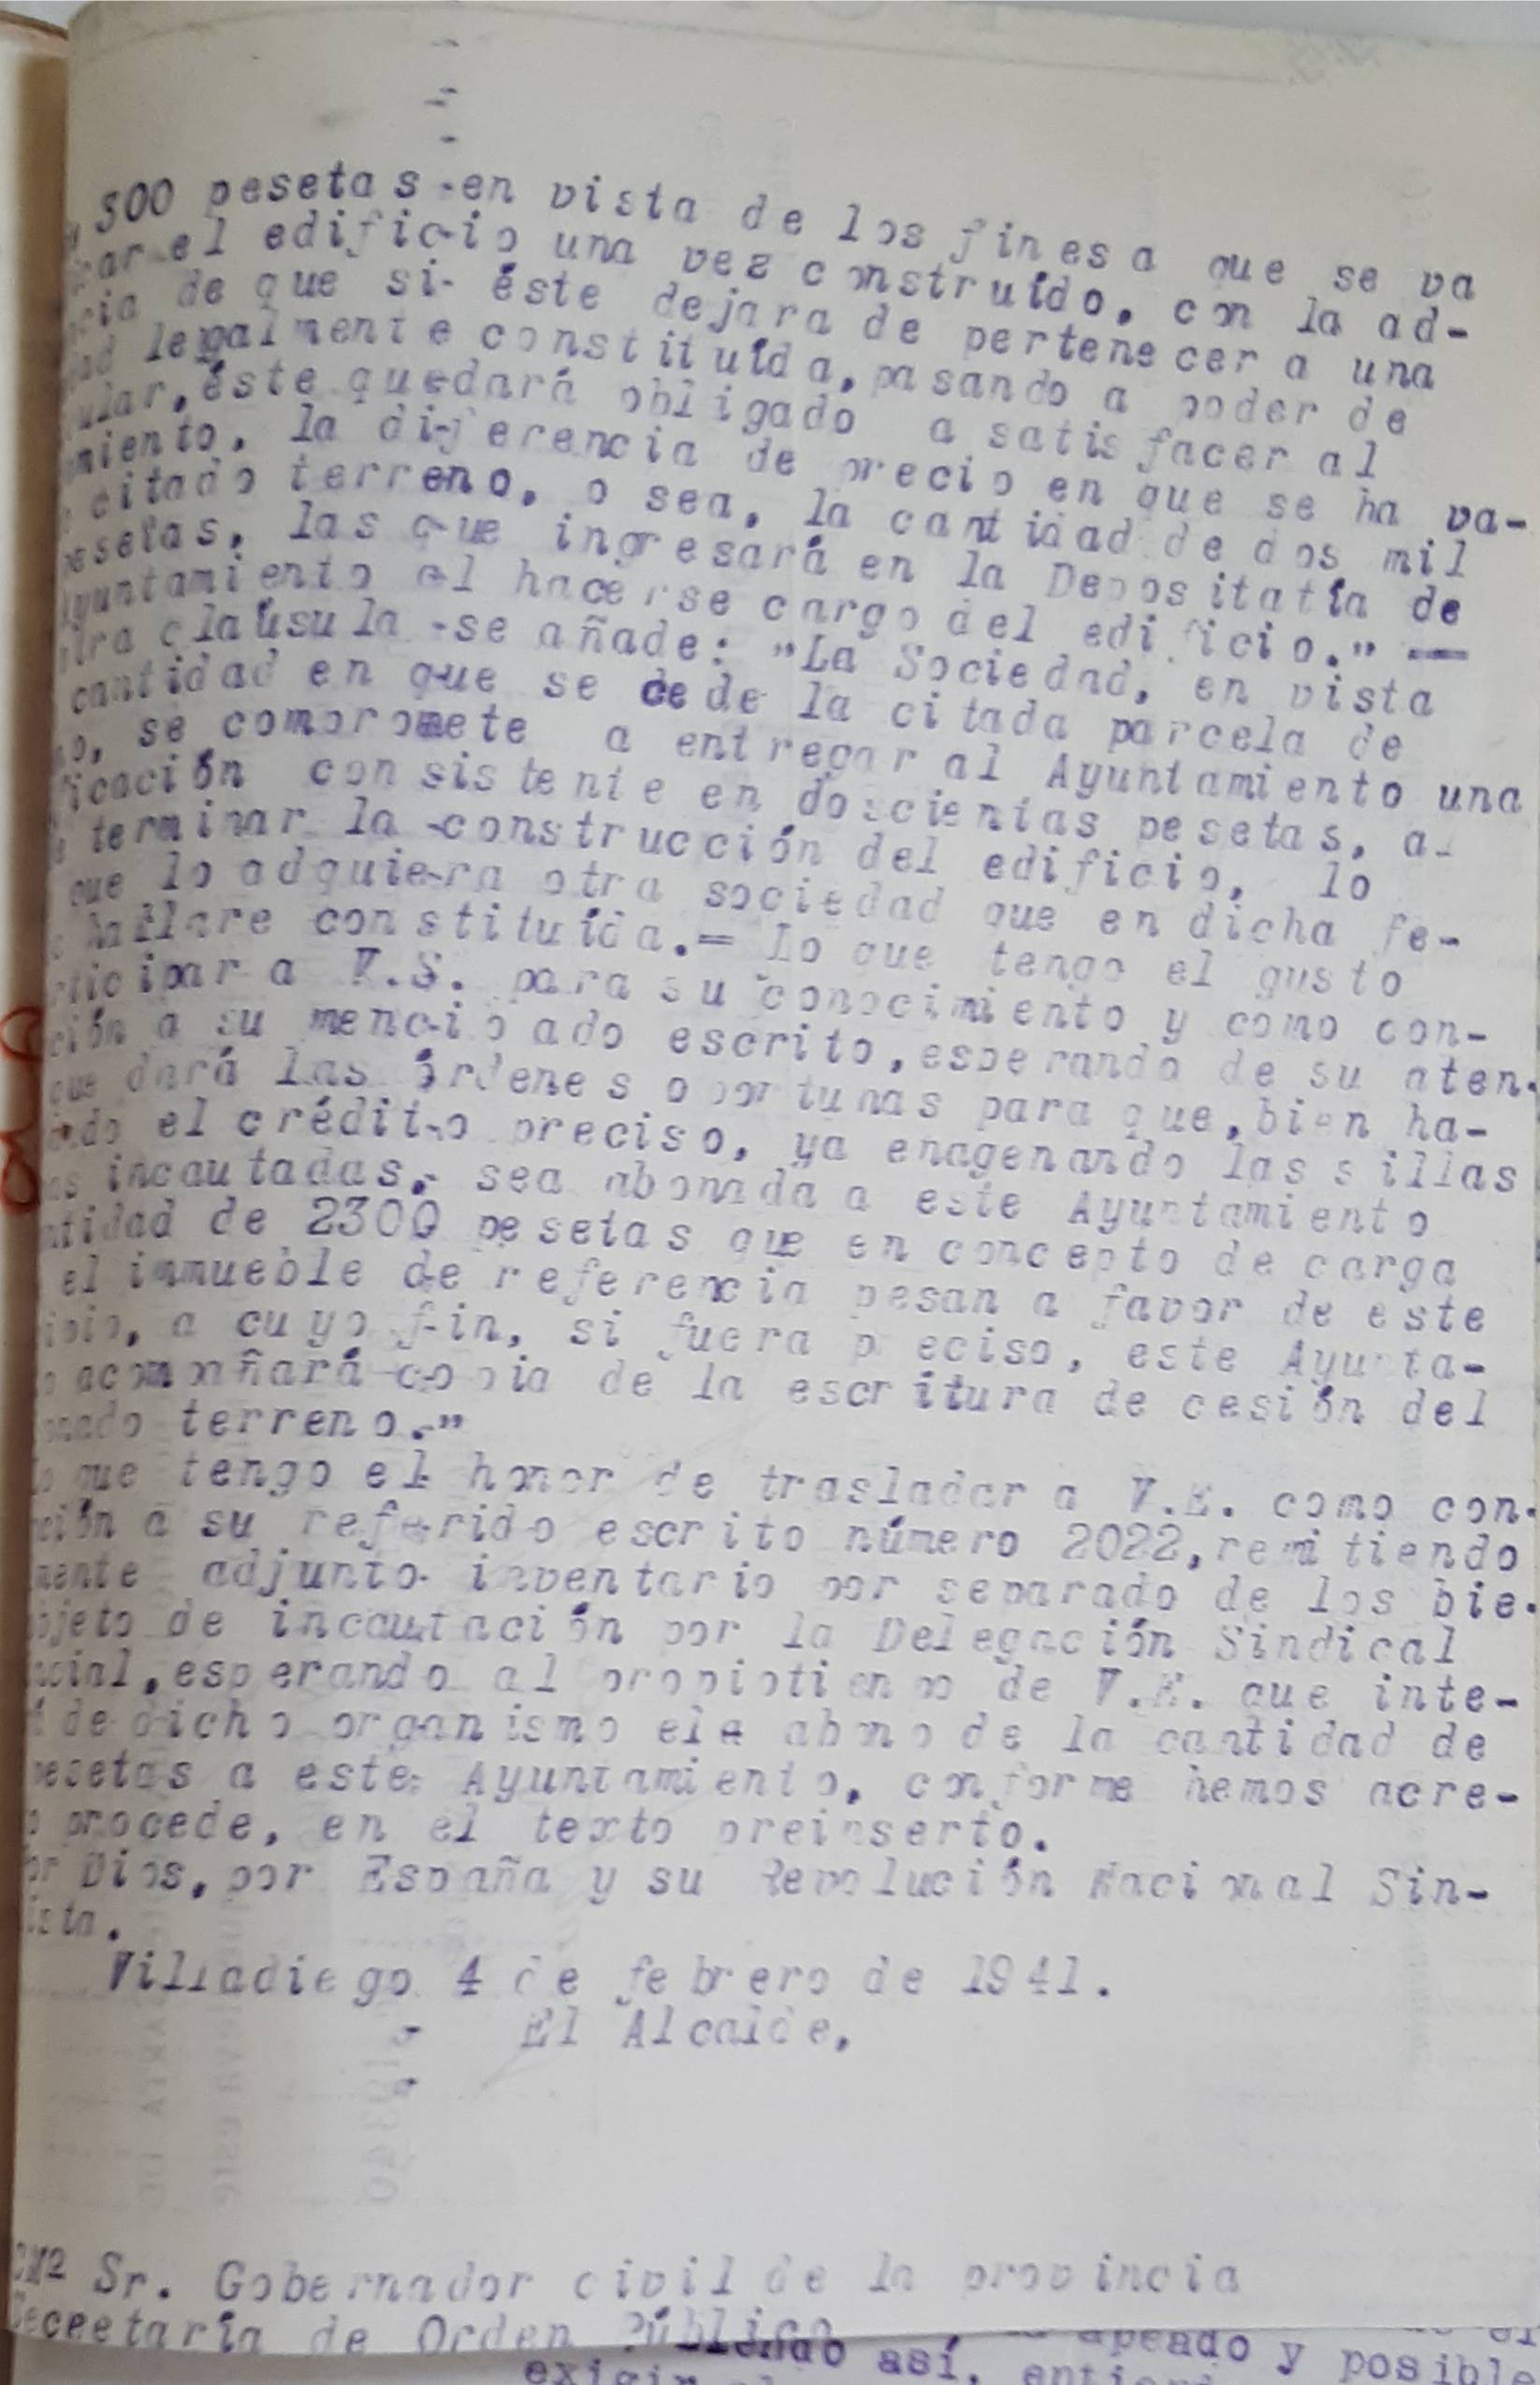 300 pesetas en vista de los fines a que se va
el edificio una vez construído, con la ad-
de que si éste dejara de pertenecer a una
legalmente constituída, pasando a poder de
éste quedará obligado a satisfacer al
la diferencia de precio en que se ha va-
citado terreno, o sea, la cantidad de dos mil
las que ingresará en la Depositatía de
Ayuntamiento al hacerse cargo del edificio." =
claúsula se añade: "La Sociedad, en vista
cantidad en que se cede la citada parcela de
se compromete a entregar al Ayuntamiento una
consistente en doscientas pesetas, al
terminar la construcción del edificio, lo
que lo adquiera otra sociedad que en dicha fe-
hallare constituída.= Lo que tengo el gusto
a V.S. para su conocimiento y como con-
a su mencioado escrito, esperando de su aten-
que dará las órdenes oportunas para que, bien ha-
el crédito preciso, ya enagenando las sillas
incautadas, sea abonada a este Ayuntamiento
de 2300 pesetas que en concepto de carga
el immueble de referencia pesan a favor de este
a cuyo fin, si fuera p eciso, este Ayunta-
acompañará copia de la escritura de cesión del
terreno."
que tengo el honor de trasladar a V.E. como con-
a su referido escrito número 2022, remitiendo
adjunto inventario por separado de los bie-
de incautación por la Delegación Sindical
esperando al propiotiempo de V.E. que inte-
de dicho organismo ele abono de la cantidad de
pesetas a este Ayuntamiento, conforme hemos acre-
procede, en el texto preinserto.
Dios, por España y su Revolución Nacional Sin-
Villadiego 4 de febrero de 1941.
El Alcalde,
Sr. Gobernador civil de la provincia
Seceetaría de Orden Público
apeado y posible
así,